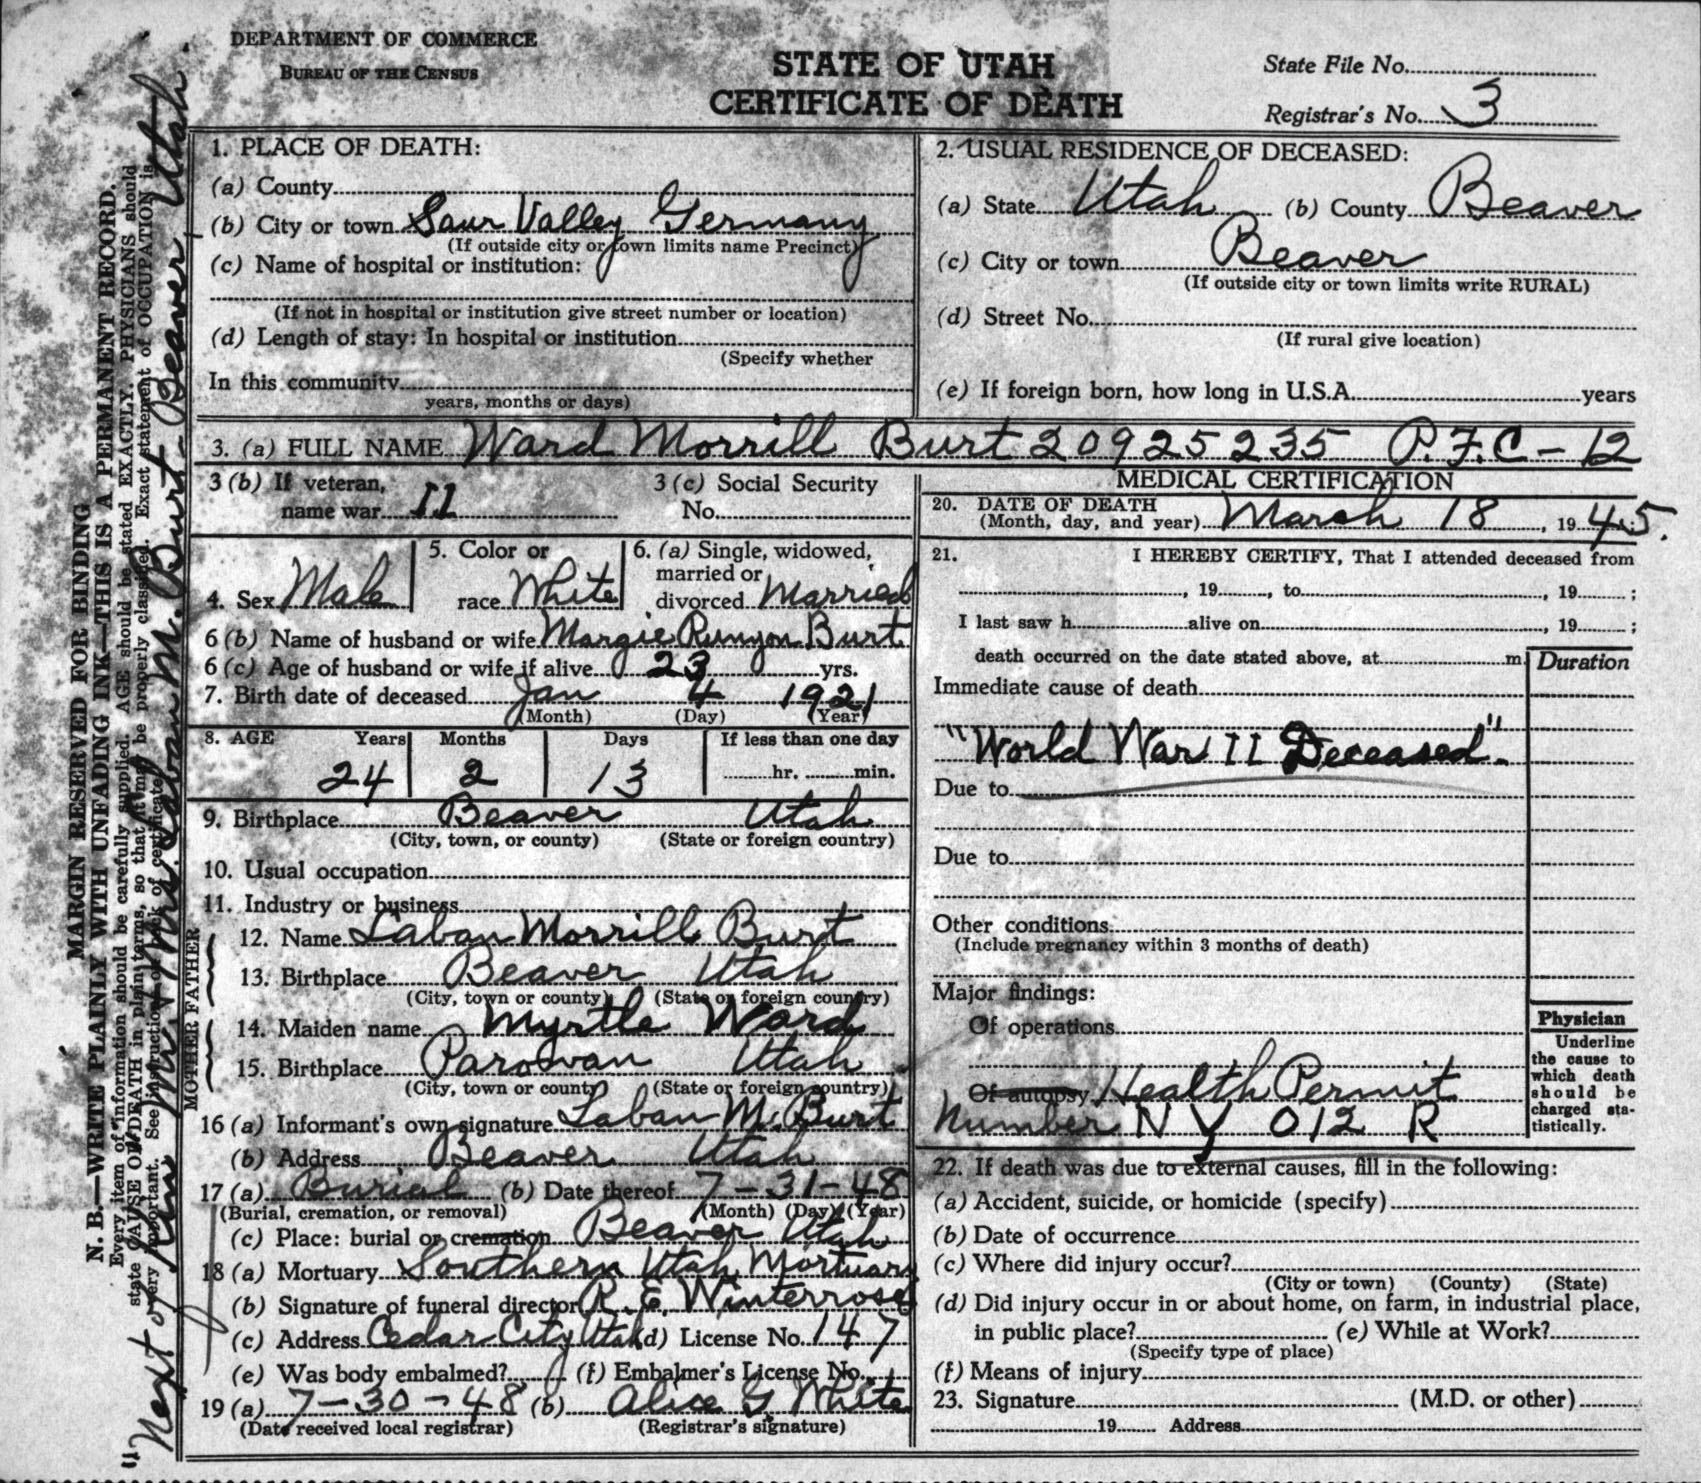 DEPARTMENT OF COMMERCE
BUREAU OF THE CENSUS
STATE OF UTAH
CERTIFICATE OF DEATH
State File No.
Registrar's No. 3
1. PLACE OF DEATH:
(a) County
(b) City or town Saur Valley Germany
(If outside city or town limits name Precinct)
(c) Name of hospital or institution:
(If not in hospital or institution give street number or location)
(d) Length of stay: In hospital or institution
(Specify whether
In this community
years, months or days)
2. USUAL RESIDENCE OF DECEASED:
(a) State Utah (b) County Beaver
(c) City or town Beaver
(If outside city or town limits write RURAL)
(d) Street No.
(If rural give location)
(e) If foreign born, how long in U.S.A. years
3. (a) FULL NAME Ward Morrill Burt 20925235 P.F.C - 12
3 (b) If veteran,
name war II
3 (c) Social Security
No.
4. Sex Male
5. Color or
race White
6. (a) Single, widowed,
married or
divorced Married
6 (b) Name of husband or wife Margie Runyon Burt
6 (c) Age of husband or wife if alive 23 yrs.
7. Birth date of deceased Jan 4 1921
(Month) (Day) (Year)
8. AGE Years Months Days If less than one day
24 2 13 hr. min.
9. Birthplace Beaver Utah
(City, town, or county) (State or foreign country)
10. Usual occupation
11. Industry or business
FATHER
12. Name Laban Morrill Burt
13. Birthplace Beaver Utah
(City, town or county) (State or foreign country)
MOTHER
14. Maiden name Myrtle Ward
15. Birthplace Parowan Utah
(City, town or county) (State or foreign country)
16 (a) Informant's own signature Laban M. Burt
(b) Address Beaver Utah
17 (a) Burial (b) Date thereof 7-31-48
(Burial, cremation, or removal) (Month) (Day) (Year)
(c) Place: burial or cremation Beaver Utah
18 (a) Mortuary Southern Utah Mortuary
(b) Signature of funeral director R. E. Winterrose
(c) Address Cedar City Utah (d) License No. 147
(e) Was body embalmed? (f) Embalmer's License No.
19 (a) 7-30-48 (b) Alice G White
(Date received local registrar) (Registrar's signature)
MEDICAL CERTIFICATION
20. DATE OF DEATH
(Month, day, and year) March 18, 1945.
21. I HEREBY CERTIFY, That I attended deceased from
, 19 , to , 19 ;
I last saw h alive on , 19 ;
death occurred on the date stated above, at m.
Duration
Immediate cause of death
"World War II Deceased".
Due to
Due to
Other conditions
(Include pregnancy within 3 months of death)
Major findings:
Of operations
Of autopsy Health Permit
Number NY 012 R
Physician
Underline
the cause to
which death
should be
charged sta-
tistically.
22. If death was due to external causes, fill in the following:
(a) Accident, suicide, or homicide (specify)
(b) Date of occurrence
(c) Where did injury occur?
(City or town) (County) (State)
(d) Did injury occur in or about home, on farm, in industrial place,
in public place? (e) While at Work?
(Specify type of place)
(f) Means of injury
23. Signature (M.D. or other)
19 Address
MARGIN RESERVED FOR BINDING
N. B.—WRITE PLAINLY WITH UNFADING INK—THIS IS A PERMANENT RECORD.
Every item of information should be carefully supplied. AGE should be stated EXACTLY. PHYSICIANS should
state CAUSE OF DEATH in plain terms, so that it may be properly classified. Exact statement of OCCUPATION is
very important. See instruction on back of certificate.
Next of Kin Mr. & Mrs. Laban M. Burt - Beaver, Utah